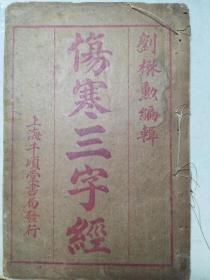 劉楙勲編輯
傷寒三字經
上海千頃堂書局發行